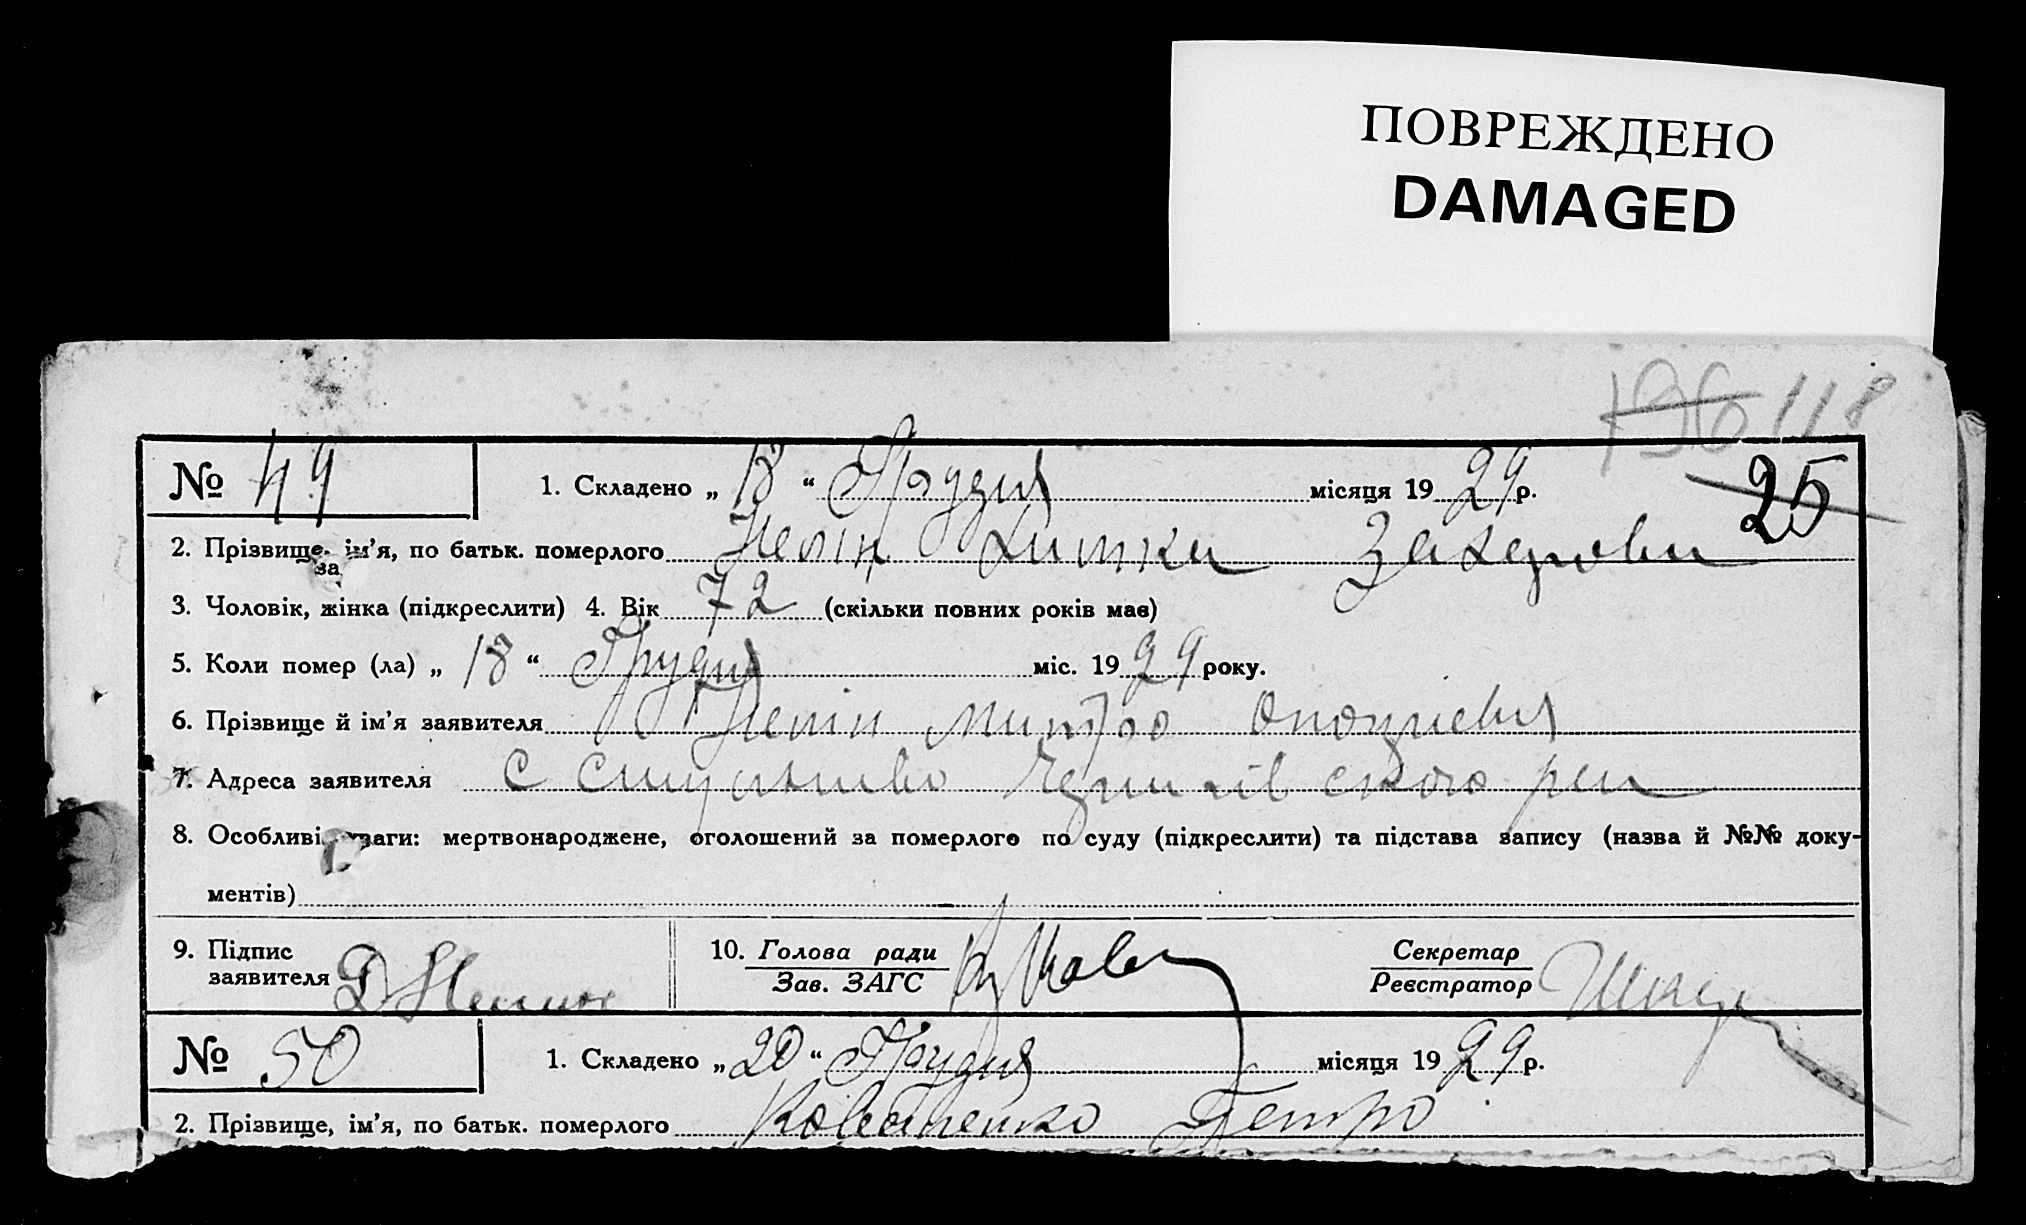 ПОВРЕЖДЕНО
DAMAGED
136 118
№ 49 1. Складено „ 18 “ Грудня місяця 19 29 р. 25
2. Прізвище, ім'я, по батьк. померлого
за
3. Чоловік, жінка (підкреслити) 4. Вік 72 (скільки повних років має)
5. Коли помер (ла) „ 18 “ Грудня міс. 19 29 року.
6. Прізвище й ім'я заявителя Митро
7. Адреса заявителя с
8. Особливі уваги: мертвонароджене, оголошений за померлого по суду (підкреслити) та підстава запису (назва й №№ доку-
ментів)
9. Підпис
заявителя
10. Голова ради
Зав. ЗАГС
Секретар
Реєстратор
№ 50 1. Складено „ 20 “ Грудня місяця 19 29 р.
2. Прізвище, ім'я, по батьк. померлого Петро